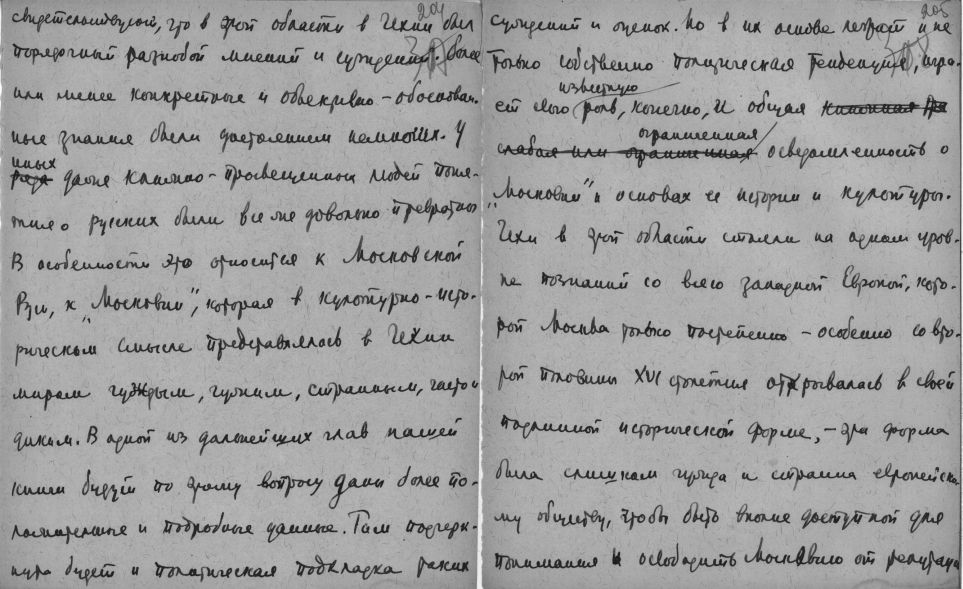 204
свидетельствуют, что в этой области в Чехии был
порядочный разнобой мнений и суждений. Более
или менее конкретные и объективно-обоснован-
ные знания были достоянием немногих. У
иных
ряда даже книжно-просвещенных людей поня-
тие о русских были все же довольно превратны
В особенности это относится к Московской
Руси, к „Московии", которая в культурно-исто-
рическом смысле представлялась в Чехии
миром чуждым, чужим, странным, часто и
диким. В одной из дальнейших глав нашей
книги будут по этому вопросу даны более по-
ложительные и подробные данные. Там подчерк-
нута будет и политическая подкладка таких
205
суждений и оценок. Но в их основе лежат и не
только собственно политическая тенденция, игра-
известную
ет свою роль, конечно, и общая книжная
ограниченная
слабая или ограниченная осведомленность о
„Московии" и основах ее истории и культуры.
Чехи в этой области стояли на одном уров-
не познаний со всею западной Европой, кото-
рой Москва только постепенно – особенно со вто-
рой половины XVI столетия открывалась в своей
подлинной исторической форме, – эта форма
была слишком чужда и странна европейско-
му обществу, чтобы быть вполне доступной для
понимания и освободить Московию от репутации